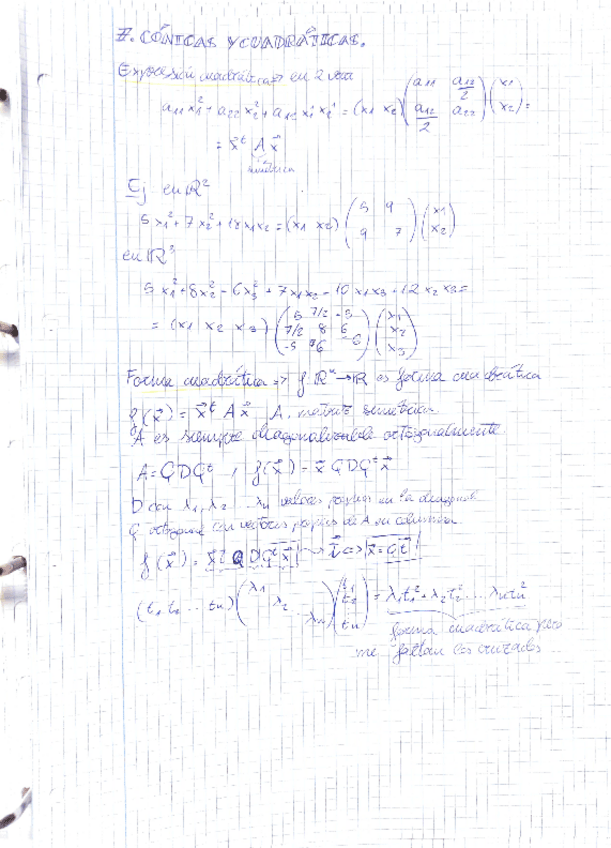 7. CÓNICAS Y CUADRÁTICAS.
Expresión cuadrática => en 2 var
a11 x1² + a22 x2² + a12 x1 x2 = (x1 x2) (a11 a12/2 ; a12/2 a22) (x1 ; x2) =
= x⃗^t A x⃗
simétrica
Ej en ℝ²
5x1² + 7x2² + 18x1x2 = (x1 x2) (5 9 ; 9 7) (x1 ; x2)
en ℝ³
5x1² + 8x2² - 6x3² + 7x1x2 - 10x1x3 + 12x2x3 =
= (x1 x2 x3) (5 7/2 -5 ; 7/2 8 6 ; -5 6 -6) (x1 ; x2 ; x3)
Forma cuadrática => f: ℝⁿ → ℝ es forma cuadrática
f(x⃗) = x⃗^t A x⃗ A. matriz simétrica
A es siempre diagonalizable ortogonalmente
A = QDQ^t , f(x⃗) = x⃗ QDQ^t x⃗
D con λ1, λ2 ... λn valores propios en la diagonal
Q ortogonal con vectores propios de A en columna
f(x⃗) = x⃗^t Q D Q^t x⃗ → t⃗ <=> x⃗ = Q t⃗
(t1 t2 ... tn) (λ1 λ2 λn) (t1 ; t2 ; tn) = λ1t1² + λ2t2² ... λntn²
forma cuadrática pero
me faltan los cruzados